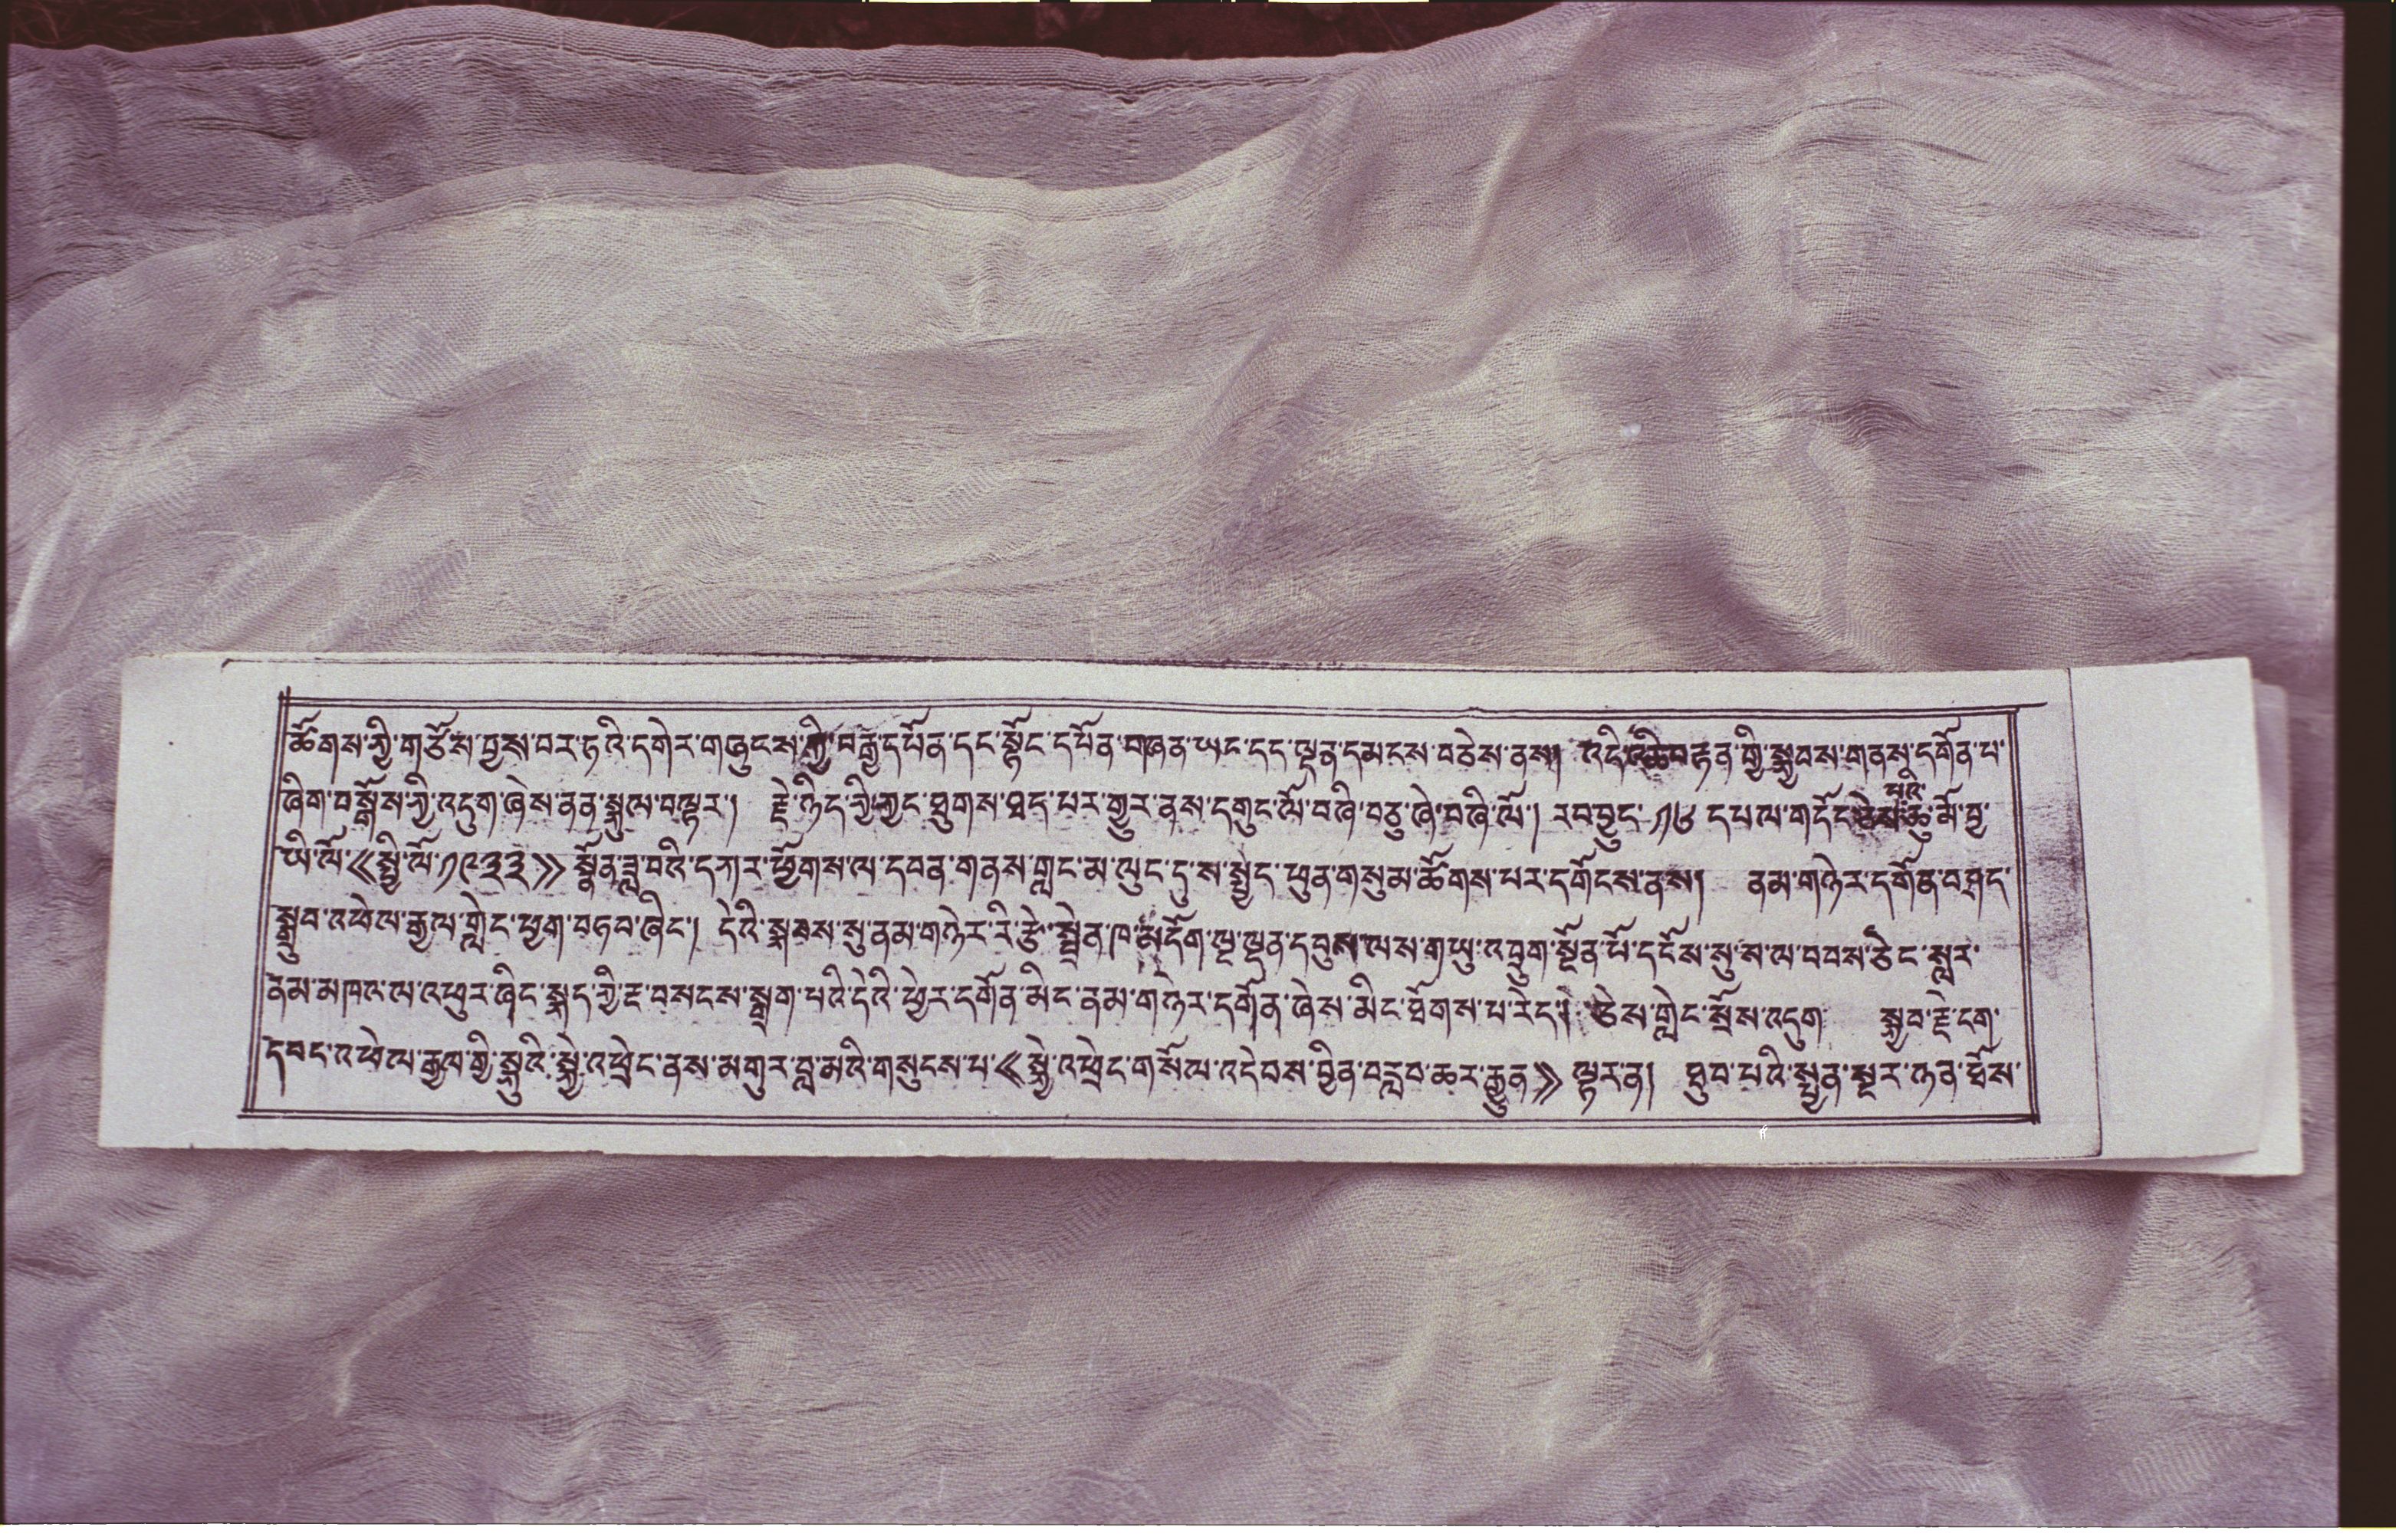 ཚོགས་ཀྱི་གཙོས་བྱས་བར་ཏཱའི་དགེར་གཞུངས་ཀྱི་བརྒྱ་དཔོན་དང་སྟོང་དཔོན་གཞན་ཡང་དད་ལྡན་དམངས་བཅེས་ནས། འདི་ བརྟན་གྱི་སྐྱབས་གནས་དགོན་པ་
ཞིག་བསྒོས་ཀྱི་འདུག་ཞེས་ནན་སྐུལ་བལྟར། རྗེ་ཉིད་ཀྱི་ཀྱང་ཐུགས་ཐད་པར་གྱུར་ནས་དགུང་ལོ་བཞི་བཅུ་ཞེ་བཞི་ལོ། རབབྱུང་༡༦ དཔལ་གདོང་ཅེས་པའི་ཆུ་མོ་བྱ་
ཡི་ལོ་《སྤྱི་ལོ་༡༩༣༣》སྟོན་ཟླ་བའི་དཀར་ཕྱོགས་ལ་དབན་གནས་གླང་མ་ལུང་དུ་ས་སྤྱད་ཕུན་གསུམ་ཚོགས་པར་དགོངས་ནས། ནམ་གཉེར་དགོན་བཤད་
སྒྲུབ་འཕེལ་རྒྱལ་གླིང་ཕྱག་བཏབ་ཞིང་། དེའི་སྐབས་སུ་ནམ་གཉེར་རི་རྩེ་སྤྲིན་ཁ་མདོག་ལྔ་ལྡན་དབུས་ལས་གཡུ་འབྲུག་སྔོན་པོ་དངོས་སུ་ས་ལ་བབས་ཅིང་སླར་
ནམ་མཁའ་ལ་འཕུར་ཞིང་སྐད་ཀྱི་ང་བསངས་སྒྲག་པའི་དེའི་ཕྱིར་དགོན་མིང་ནམ་གཉེར་དགོན་ཞེས་མིང་ཐོགས་པ་རེད། ཅེས་གླེང་སྲོས་འདུག སྐྱབ་རྗེ་ངག་
དབང་འཕེལ་རྒྱལ་གྱི་སྐུའི་སྐྱེ་འཕྲེང་ནས་མགུར་བླ་མའི་གསུངས་པ་《སྐྱེ་འཕྲེང་གསོལ་འདེབས་བྱིན་བརླབ་ཆར་རྒྱུན》ལྟར་ན། ཐུབ་པའི་སྤྱན་སྔར་ཉན་ཐོས་